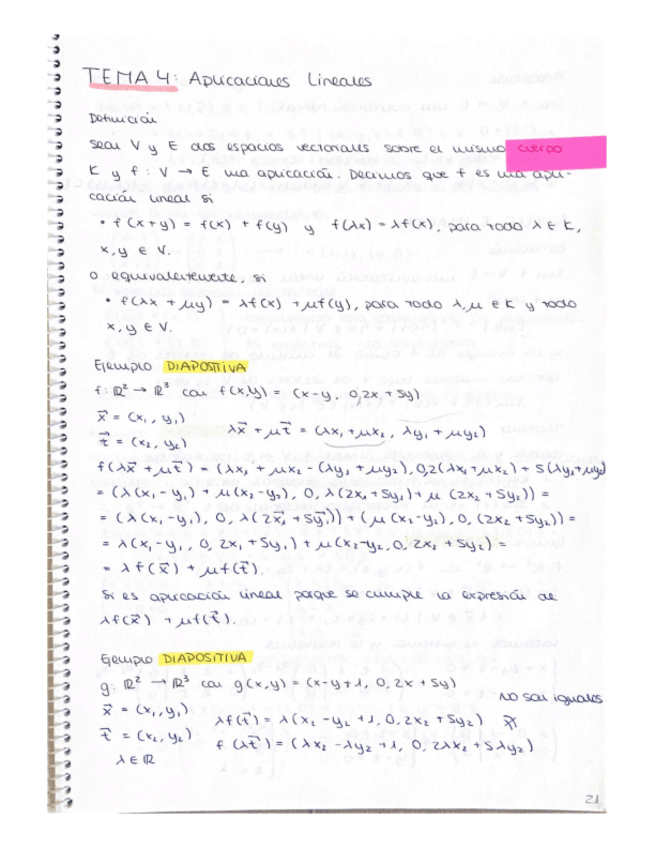 TEMA 4: Aplicaciones Lineales
Definición
Sean V y E dos espacios vectoriales sobre el mismo cuerpo
K y f: V → E una aplicación. Decimos que f es una apli-
cación lineal si
• f(x+y) = f(x) + f(y) y f(λx) = λf(x), para todo λ ∈ K,
x, y ∈ V.
o equivalentemente, si
• f(λx + μy) = λf(x) + μf(y), para todo λ, μ ∈ K y todo
x, y ∈ V.
Ejemplo DIAPOSITIVA
f: ℝ² → ℝ³ con f(x,y) = (x-y, 0, 2x + 5y)
x⃗ = (x₁, y₁)
t⃗ = (x₂, y₂) λx⃗ + μt⃗ = (λx₁ + μx₂, λy₁ + μy₂)
f(λx⃗ + μt⃗) = (λx₁ + μx₂ - (λy₁ + μy₂), 0, 2(λx₁ + μx₂) + 5(λy₁ + μy₂)
= (λ(x₁ - y₁) + μ(x₂ - y₂), 0, λ(2x₁ + 5y₁) + μ(2x₂ + 5y₂)) =
= (λ(x₁ - y₁), 0, λ(2x⃗₁ + 5y⃗₁)) + (μ(x₂ - y₂), 0, (2x₂ + 5y₂)) =
= λ(x₁ - y₁, 0, 2x₁ + 5y₁) + μ(x₂ - y₂, 0, 2x₂ + 5y₂) =
= λf(x⃗) + μf(t⃗).
Si es aplicación lineal porque se cumple la expresión de
λf(x⃗) + μf(t⃗).
Ejemplo DIAPOSITIVA
g: ℝ² → ℝ³ con g(x,y) = (x-y+1, 0, 2x + 5y)
no son iguales
x⃗ = (x₁, y₁) λf(t⃗) = λ(x₂ - y₂ + 1, 0, 2x₂ + 5y₂)
t⃗ = (x₂, y₂) f(λt⃗) = (λx₂ - λy₂ + 1, 0, 2λx₂ + 5λy₂)
λ ∈ ℝ
21